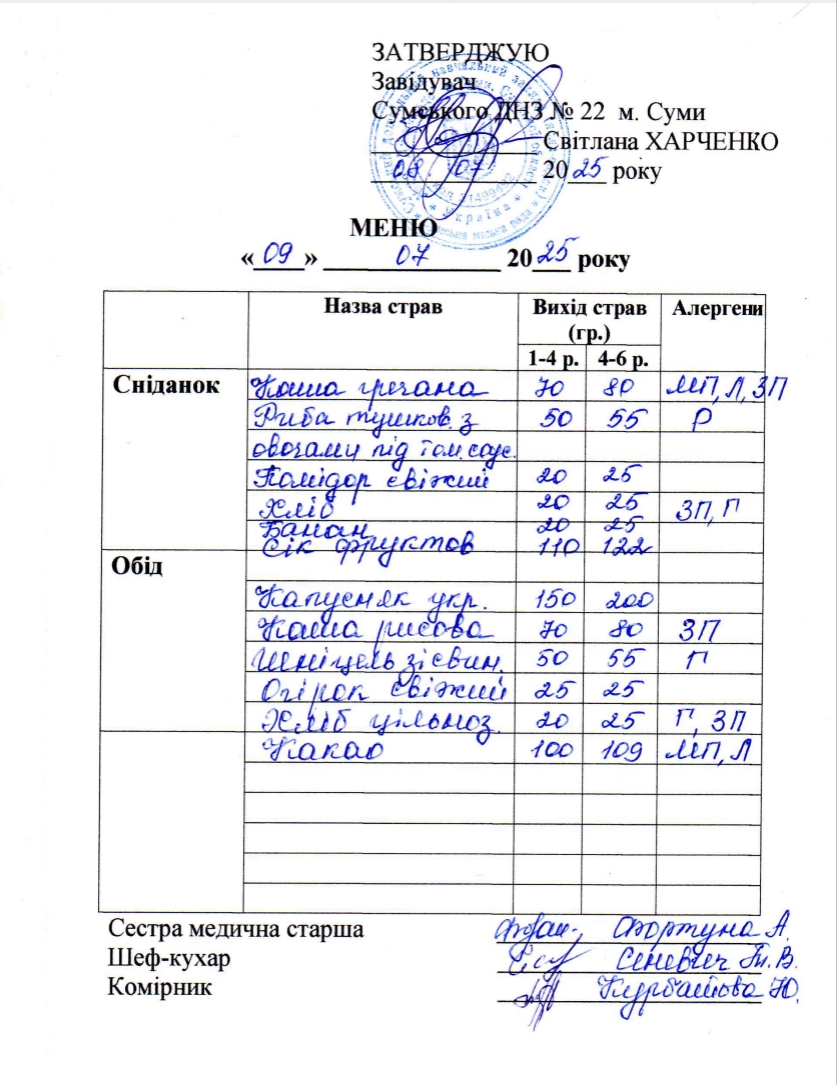 ЗАТВЕРДЖУЮ
Завідувач
Сумського ДНЗ № 22 м. Суми
Світлана ХАРЧЕНКО
08. 07 2025 року
МЕНЮ
«09» 07 2025 року
Назва страв Вихід страв (гр.) Алергени
1-4 р. 4-6 р.
Сніданок Каша гречана 70 80 МП, Л, ЗП
Риба тушков. з 50 55 Р
овочами під том. соус.
Помідор свіжий 20 25
Хліб 20 25 ЗП, Г
Банан 20 25
Сік фруктов 110 122
Обід
Капусняк укр. 150 200
Каша рисова 70 80 ЗП
Шніцель зі свин. 50 55 Г
Огірок свіжий 25 25
Хліб цільноз. 20 25 Г, ЗП
Какао 100 109 МП, Л
Сестра медична старша Фортуна А.
Шеф-кухар Сеневич Т.В.
Комірник Курбатова Ю.